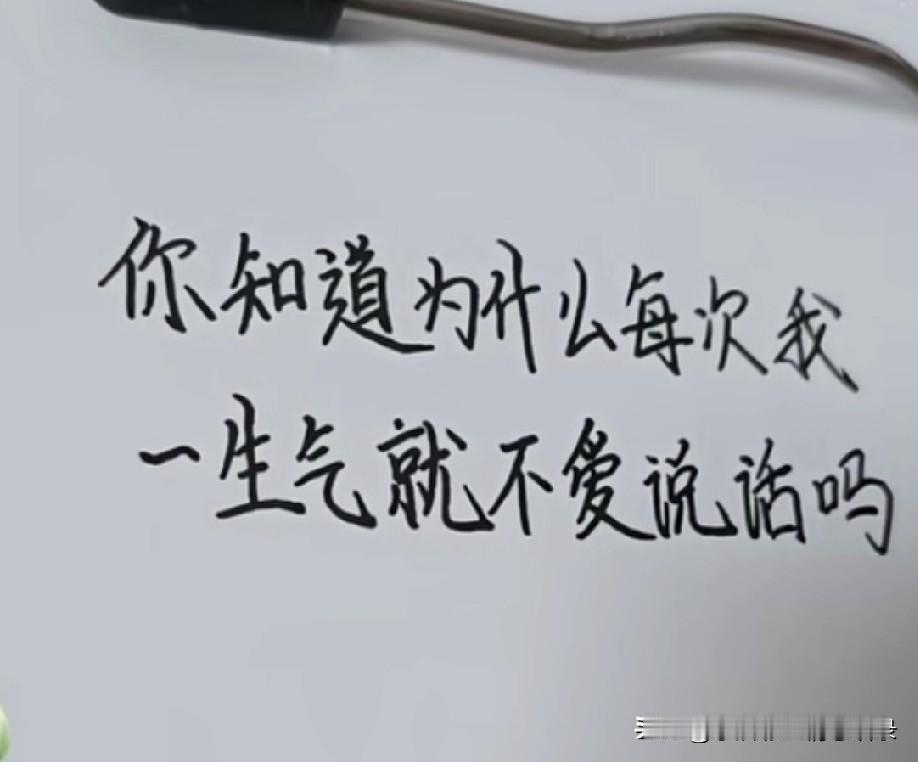 你知道为什么每次我
一生气就不爱说话吗